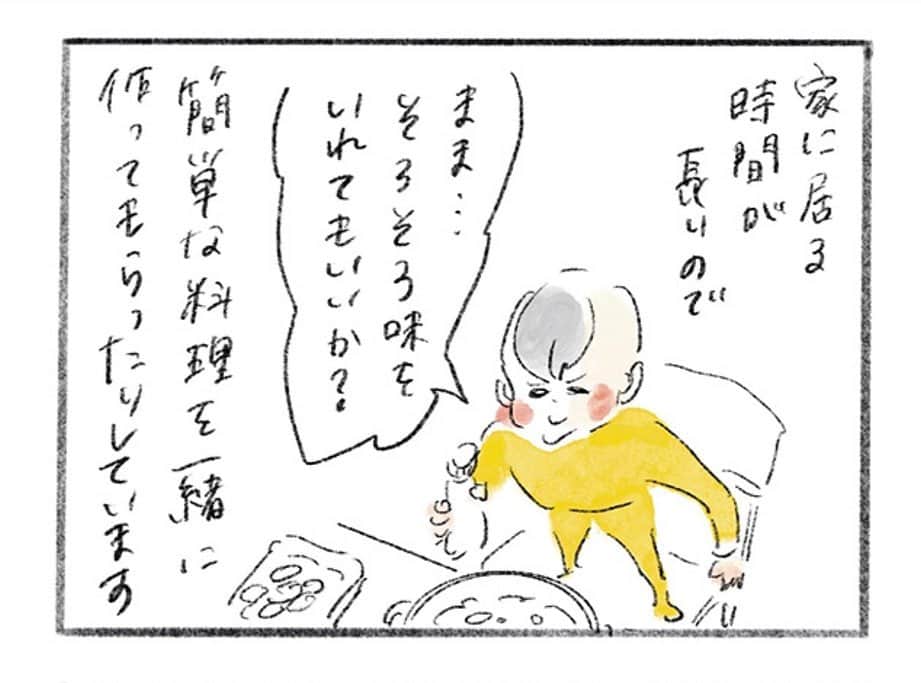 家に居る
時間が
長いので
まま…
そろそろ味を
いれてもいいか？
簡単な料理を一緒に
作ってもらったりしています